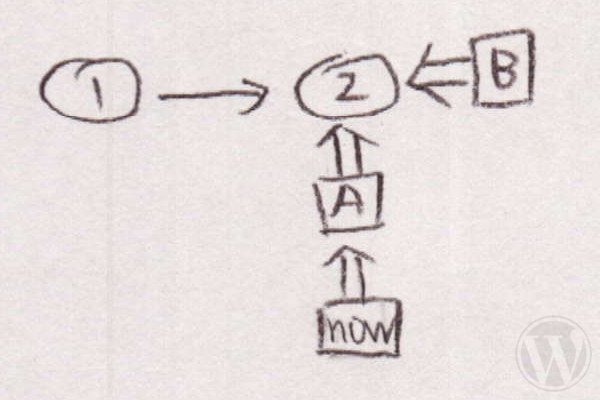 1 2 B
A
now